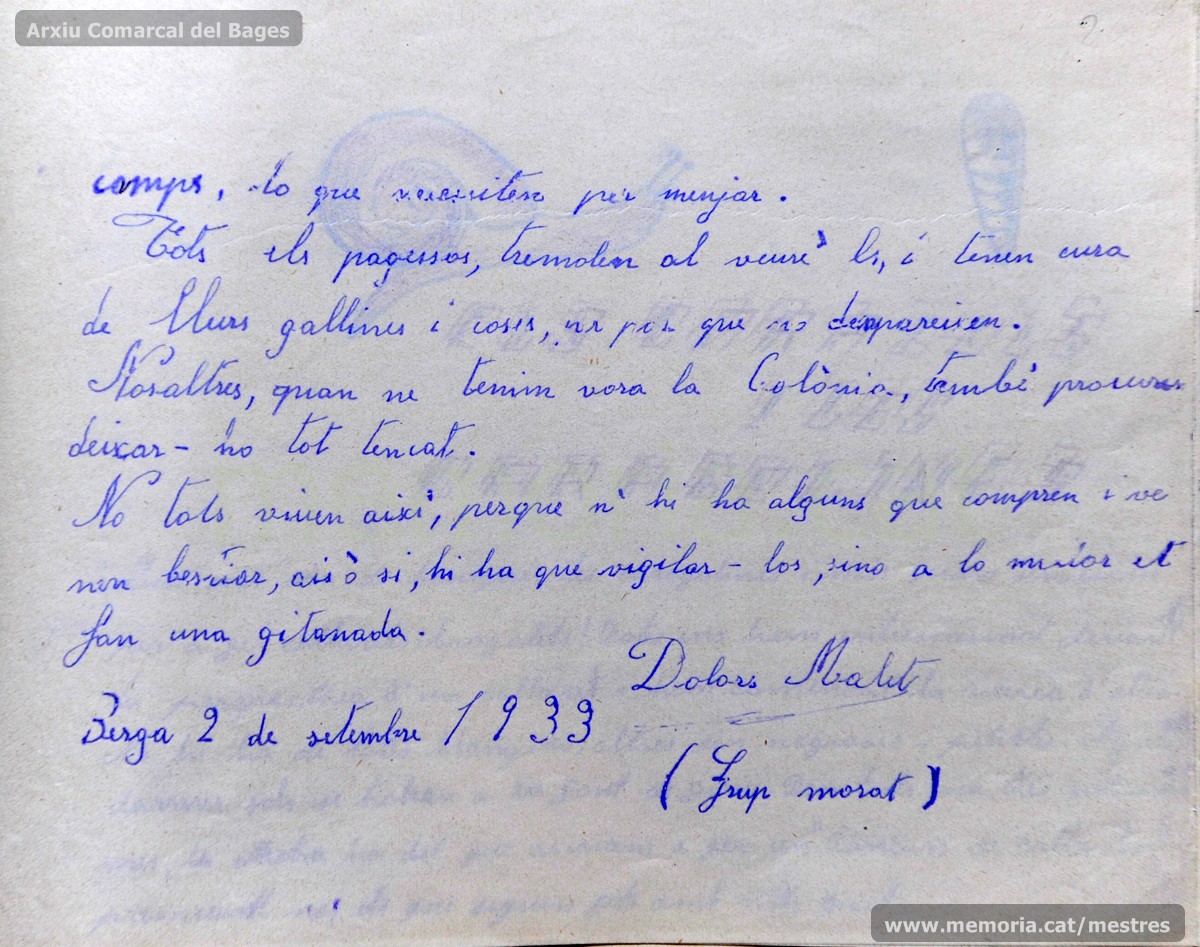 Arxiu Comarcal del Bages
2
camps, lo que necesiten per menjar.
Tots els pagessos, tremolen al veure'ls, i tenen cura
de llurs gallines i coses, per por que no desapareixen.
Nosaltres, quan ne tenim vora la Colònia, també procurem
deixar-ho tot tencat.
No tots viuen aixì, perque n'hi ha alguns que compren i ve
nen bestiar, aixó si, hi ha que vigilar-los, sino a lo millor et
fan una gitanada.
Dolors Malet
Berga 2 de setembre 1933
(Grup morat)
www.memoria.cat/mestres